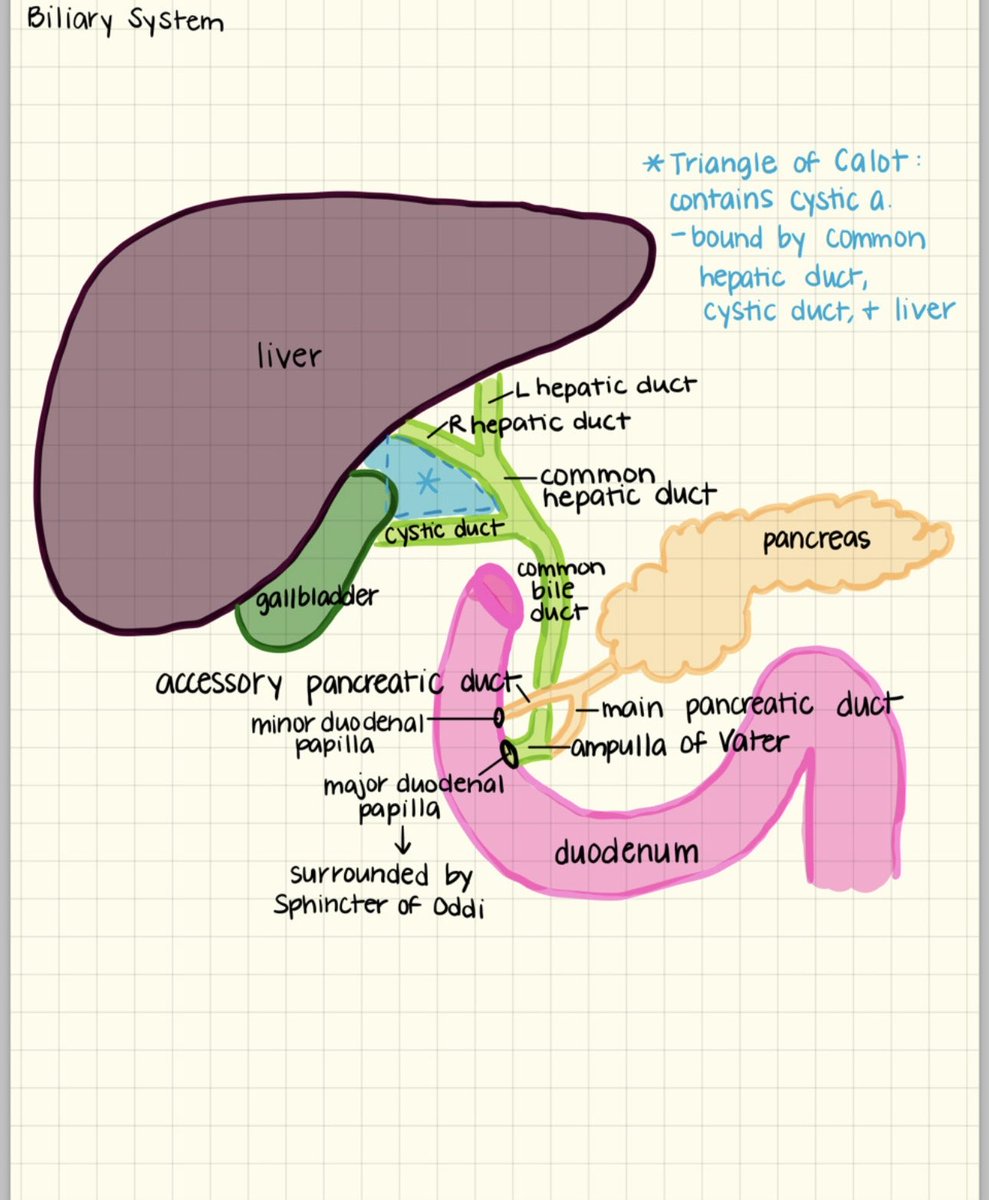 Biliary System
* Triangle of Calot:
contains cystic a.
- bound by common
hepatic duct,
cystic duct, + liver
liver
L hepatic duct
R hepatic duct
common
hepatic duct
*
cystic duct
pancreas
common
bile
duct
gallbladder
accessory pancreatic duct
minor duodenal
papilla
main pancreatic duct
ampulla of Vater
major duodenal
papilla
↓
surrounded by
Sphincter of Oddi
duodenum